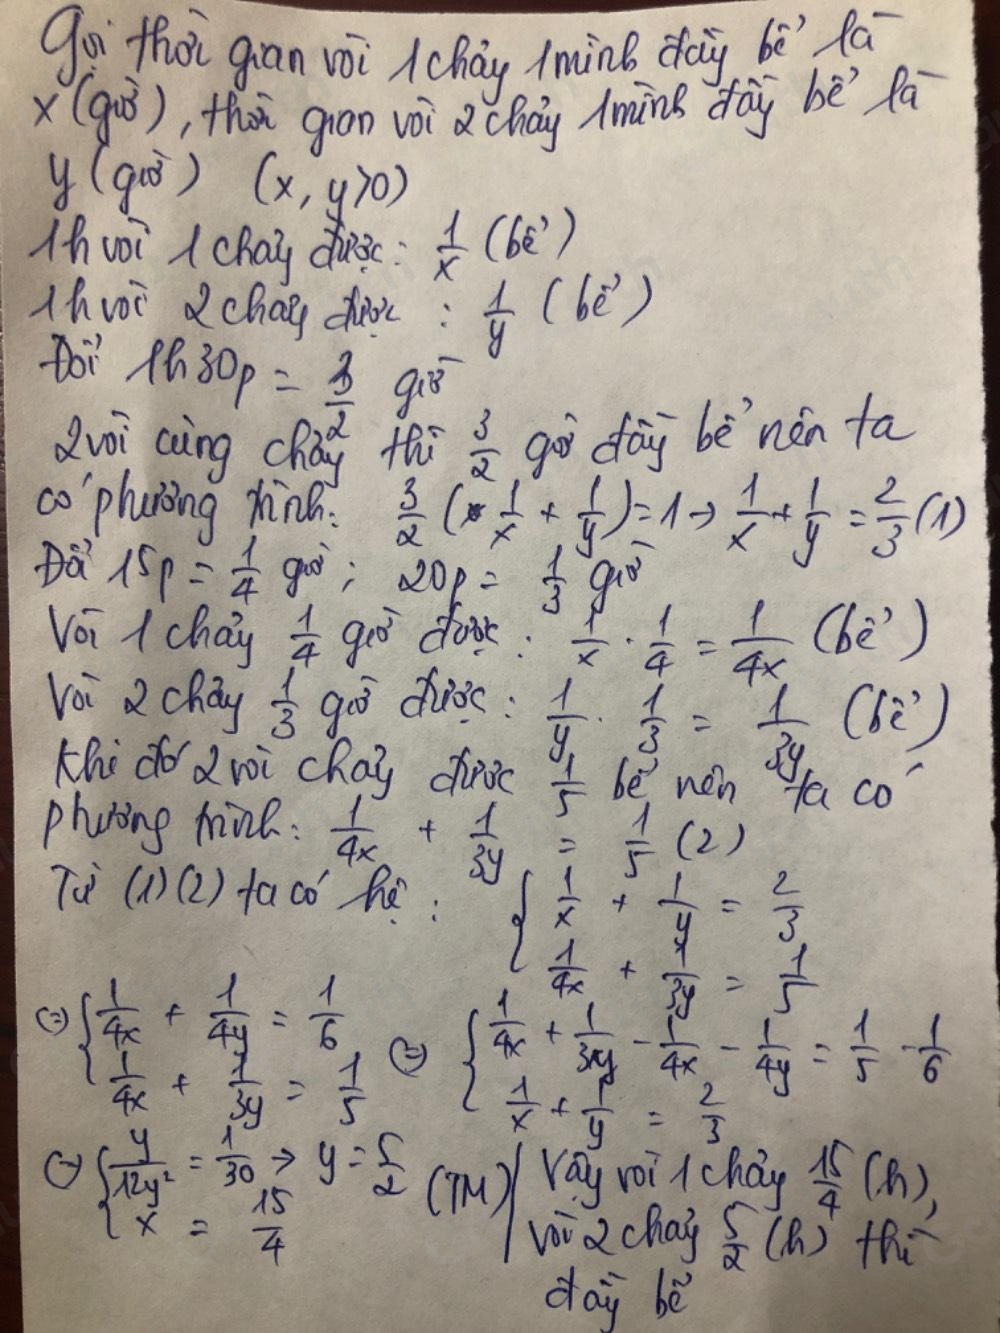 Gọi thời gian vòi 1 chảy 1 mình đầy bể là
x (giờ), thời gian vòi 2 chảy 1 mình đầy bể là
y (giờ) (x, y>0)
1h vòi 1 chảy được: 1/x (bể)
1h vòi 2 chảy được : 1/y (bể)
Đổi 1h30p = 3/2 giờ
2 vòi cùng chảy thì 3/2 giờ đầy bể nên ta
có phương trình: 3/2 (1/x + 1/y) = 1 → 1/x + 1/y = 2/3 (1)
Đổi 15p = 1/4 giờ ; 20p = 1/3 giờ
Vòi 1 chảy 1/4 giờ được : 1/x . 1/4 = 1/4x (bể)
Vòi 2 chảy 1/3 giờ được : 1/y . 1/3 = 1/3y (bể)
Khi đó 2 vòi chảy được 1/5 bể nên ta có
phương trình: 1/4x + 1/3y = 1/5 (2)
Từ (1)(2) ta có hệ : { 1/x + 1/y = 2/3
1/4x + 1/3y = 1/5
(=) { 1/4x + 1/4y = 1/6
1/4x + 1/3y = 1/5
(=) { 1/4x + 1/3y - 1/4x - 1/4y = 1/5 - 1/6
1/x + 1/y = 2/3
(=) { y/12y² = 1/30 → y = 5/2
x = 15/4
(TM)
Vậy vòi 1 chảy 15/4 (h),
vòi 2 chảy 5/2 (h) thì
đầy bể